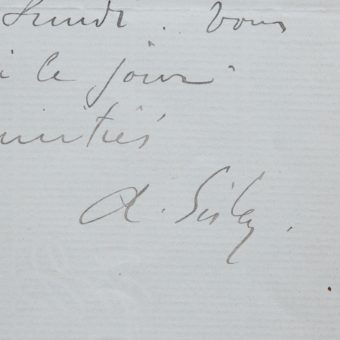 Lundi. Vous
i le jour
mitiés
A. Sisley.